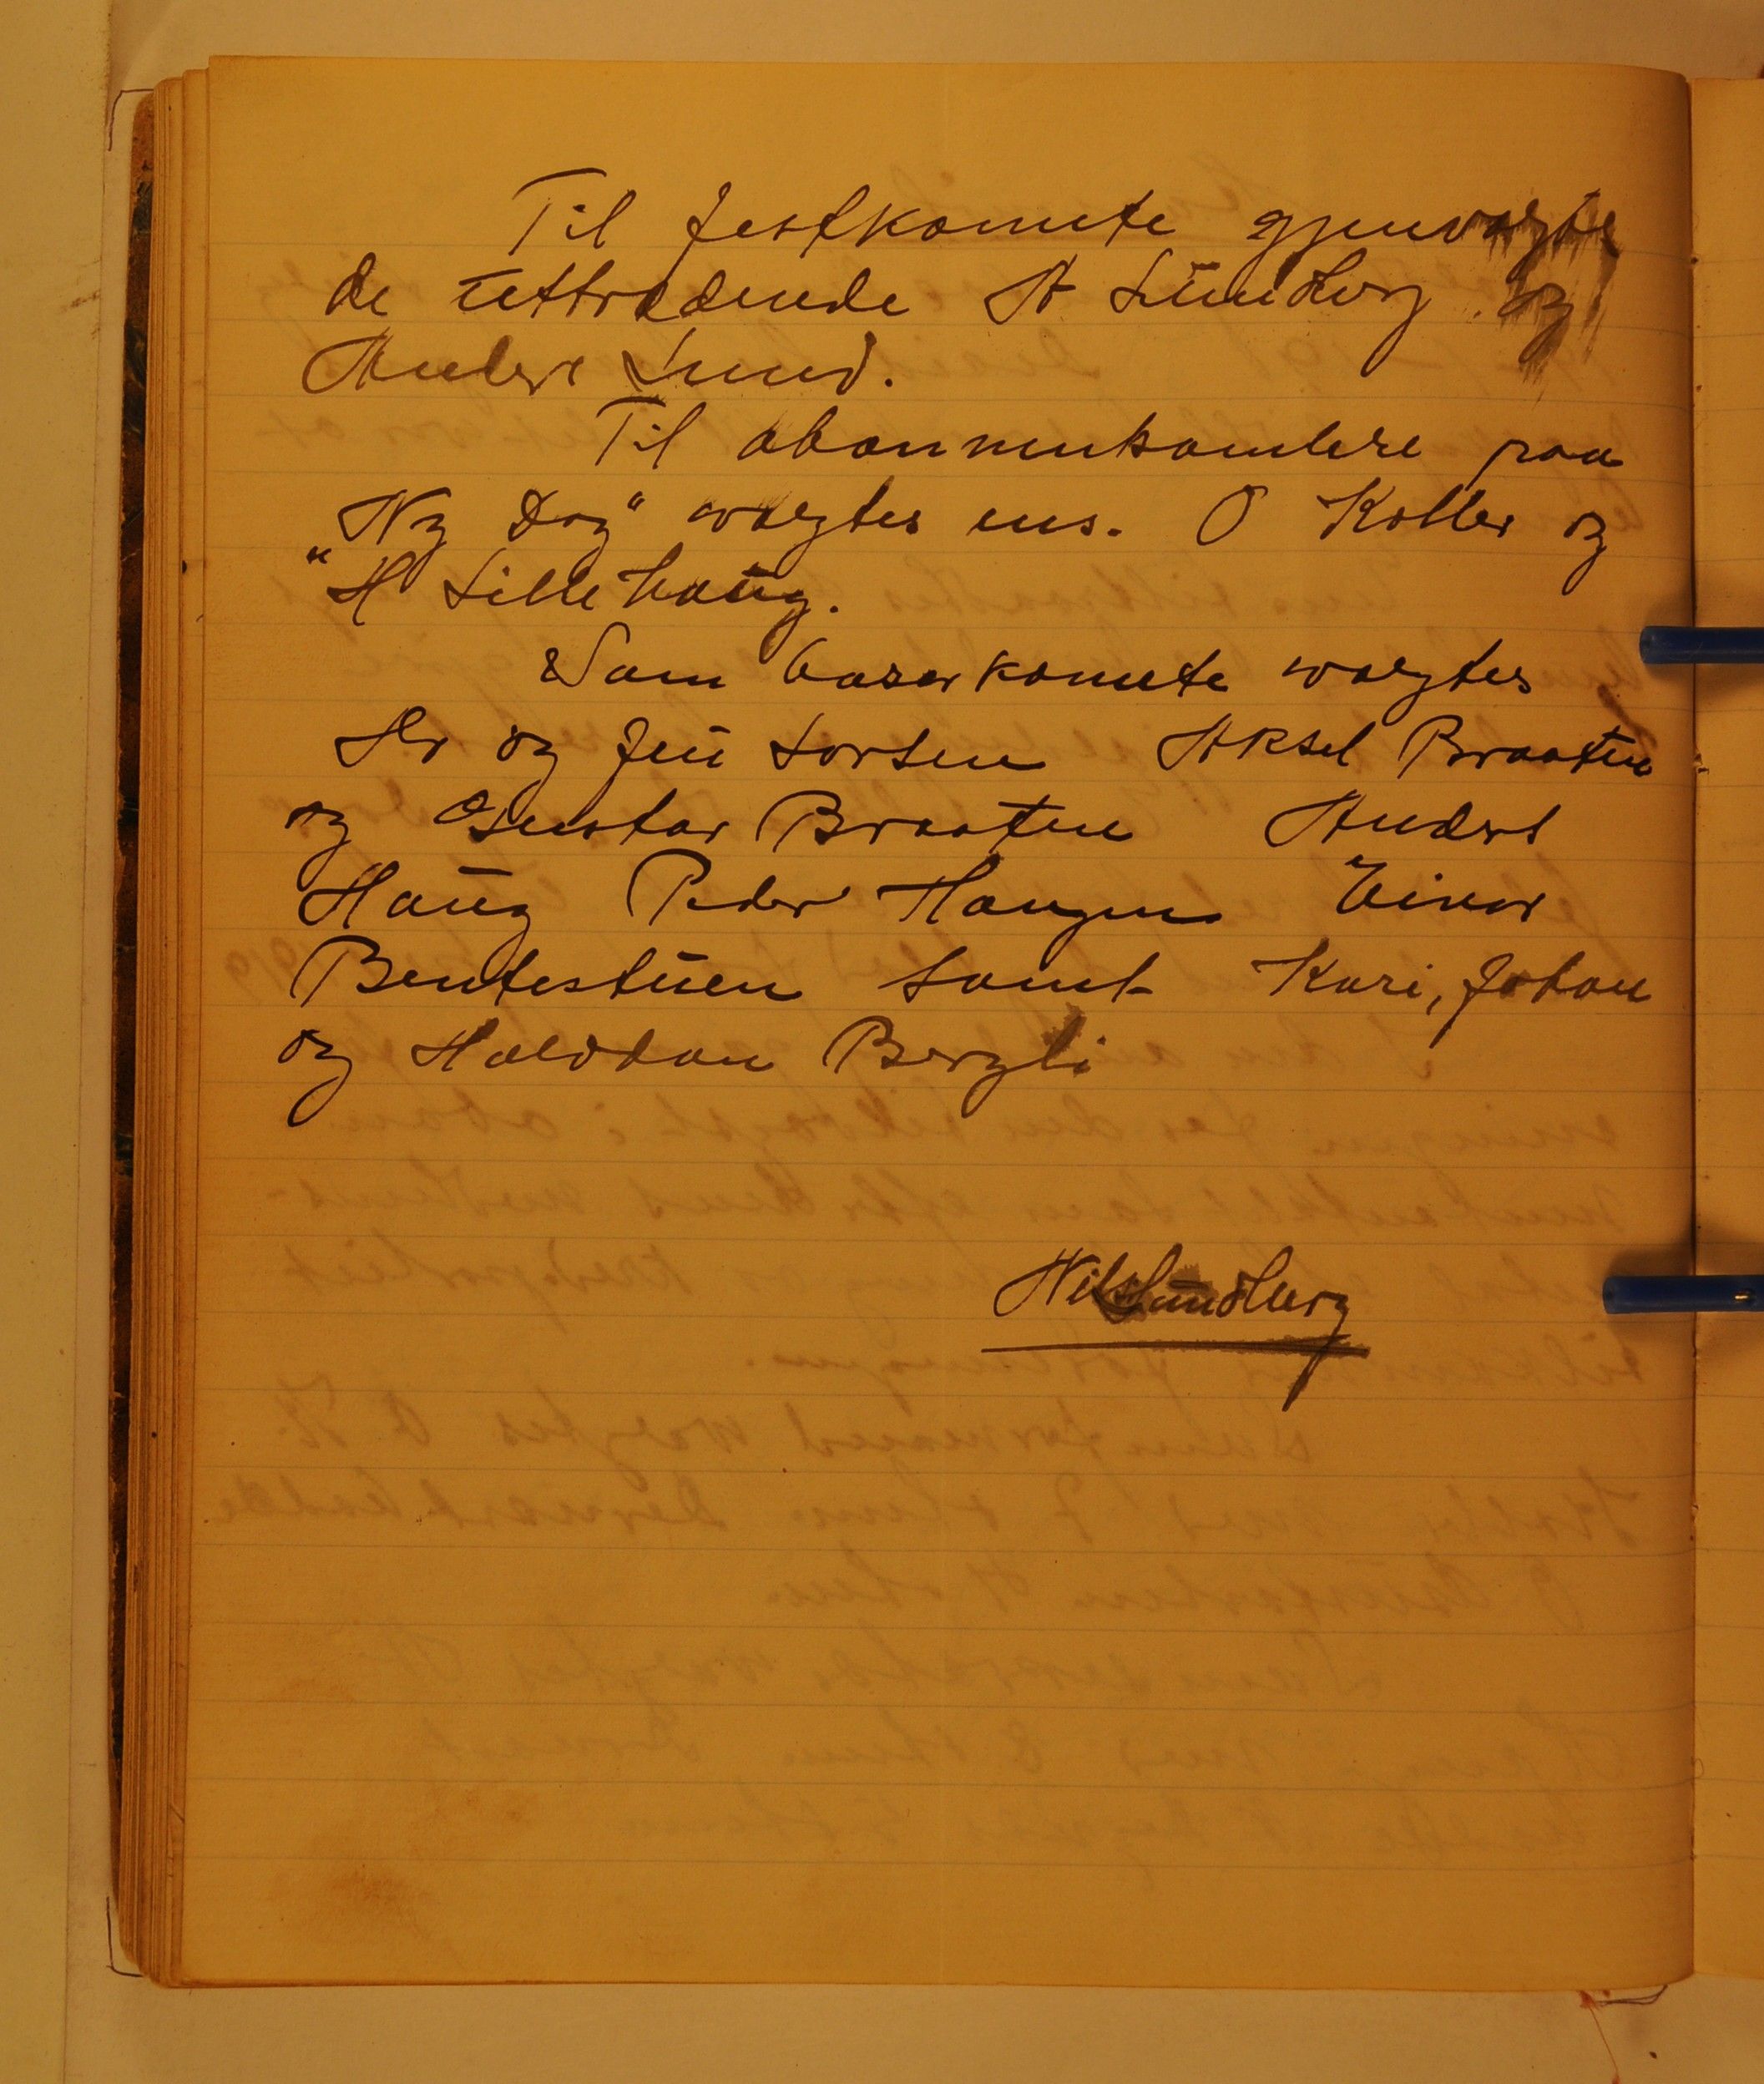 Til festkomite gjenvalgtes
de uttrædende A Lundberg og
Anders Lund.
Til abonnentsamlere paa
"Ny Dag" valgtes ens. O Koller og
"H Lillehaug.
Som basarkomite valgtes
Hr og fru Larsen Aksel Braaten
og Gustav Braaten Anders
Haug Peder Haugen Einar
Bentestuen samt Kari, Johan
og Halvdan Bergli
Nils Lundberg